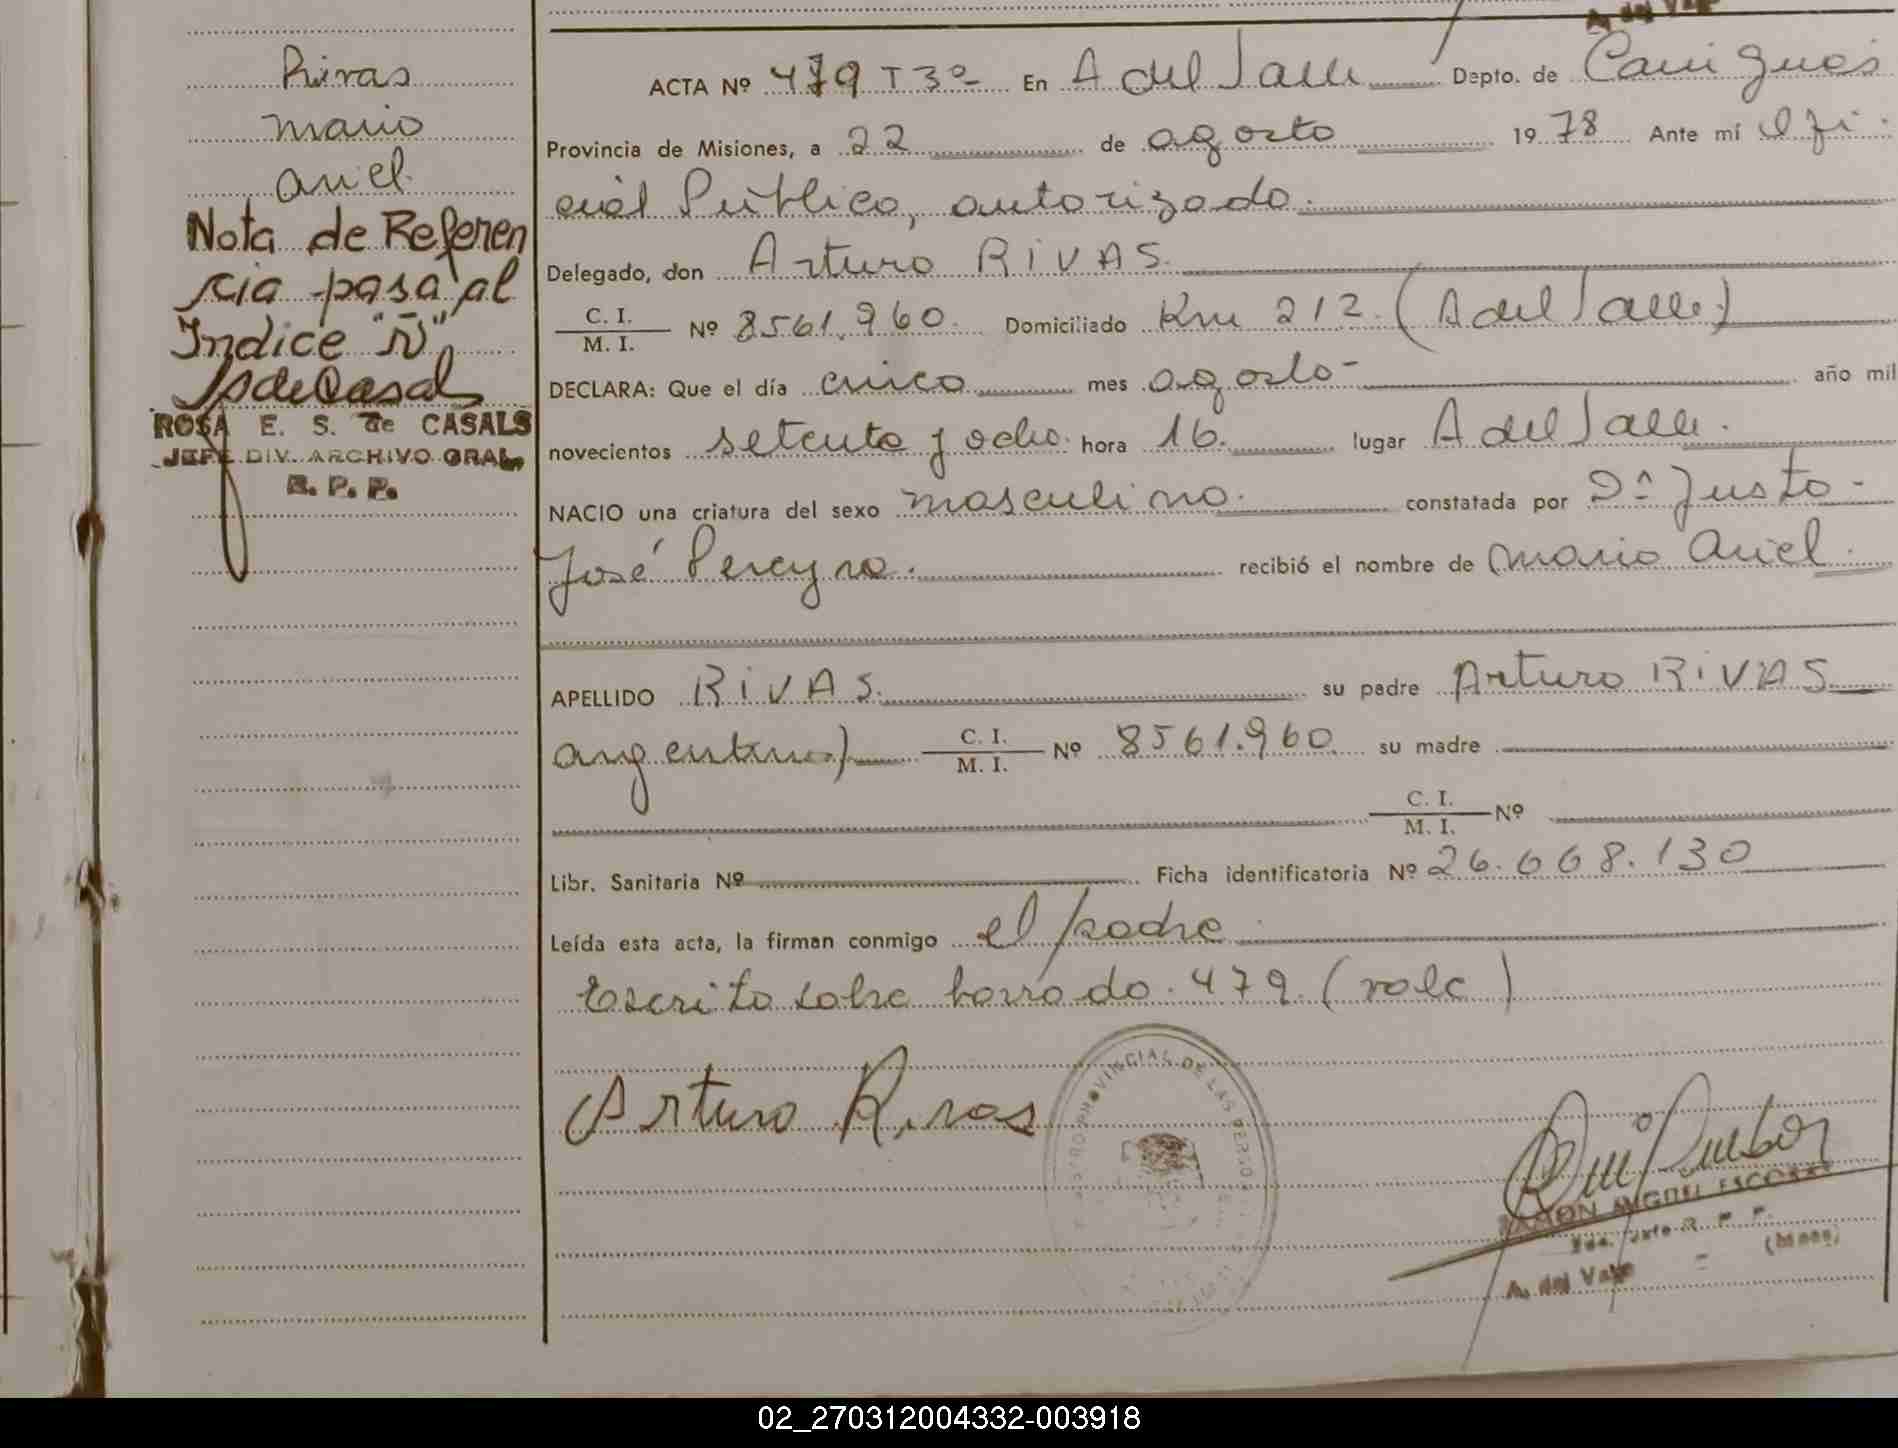 Rivas
Mario
Ariel.
Nota de Referen
cia pasa al
Indice "Ñ"
SdeCasals
ROSA E. S. de CASALS
JEFE DIV. ARCHIVO GRAL.
R. P. P.
A. del Valle
ACTA Nº 479 T 3º En A del Valle Depto. de Cainguás
Provincia de Misiones, a 22 de agosto 1978 Ante mí Ofi
cial Público, autorizado.
Delegado, don Arturo RIVAS.
C. I.
M. I. Nº 8561.960. Domiciliado Km 212. (A del Valle)
DECLARA: Que el día cinco mes agosto- año mil
novecientos setenta y ocho. hora 16. lugar A del Valle.
NACIO una criatura del sexo masculino. constatada por Dº Justo-
José Pereyra. recibió el nombre de Mario Ariel.
APELLIDO RIVAS. su padre Arturo RIVAS
argentino) C. I.
M. I. Nº 8561.960 su madre
C. I.
M. I. Nº
Libr. Sanitaria Nº Ficha identificatoria Nº 26.668.130
Leída esta acta, la firman conmigo el padre.
Escrito sobre borrado. 479. (vale)
Arturo Rivas
PROVINCIAL DE LAS PERSO
RAMON MIGUEL ESCOBAR
A. del Valle
(Mnes)
02_270312004332-003918